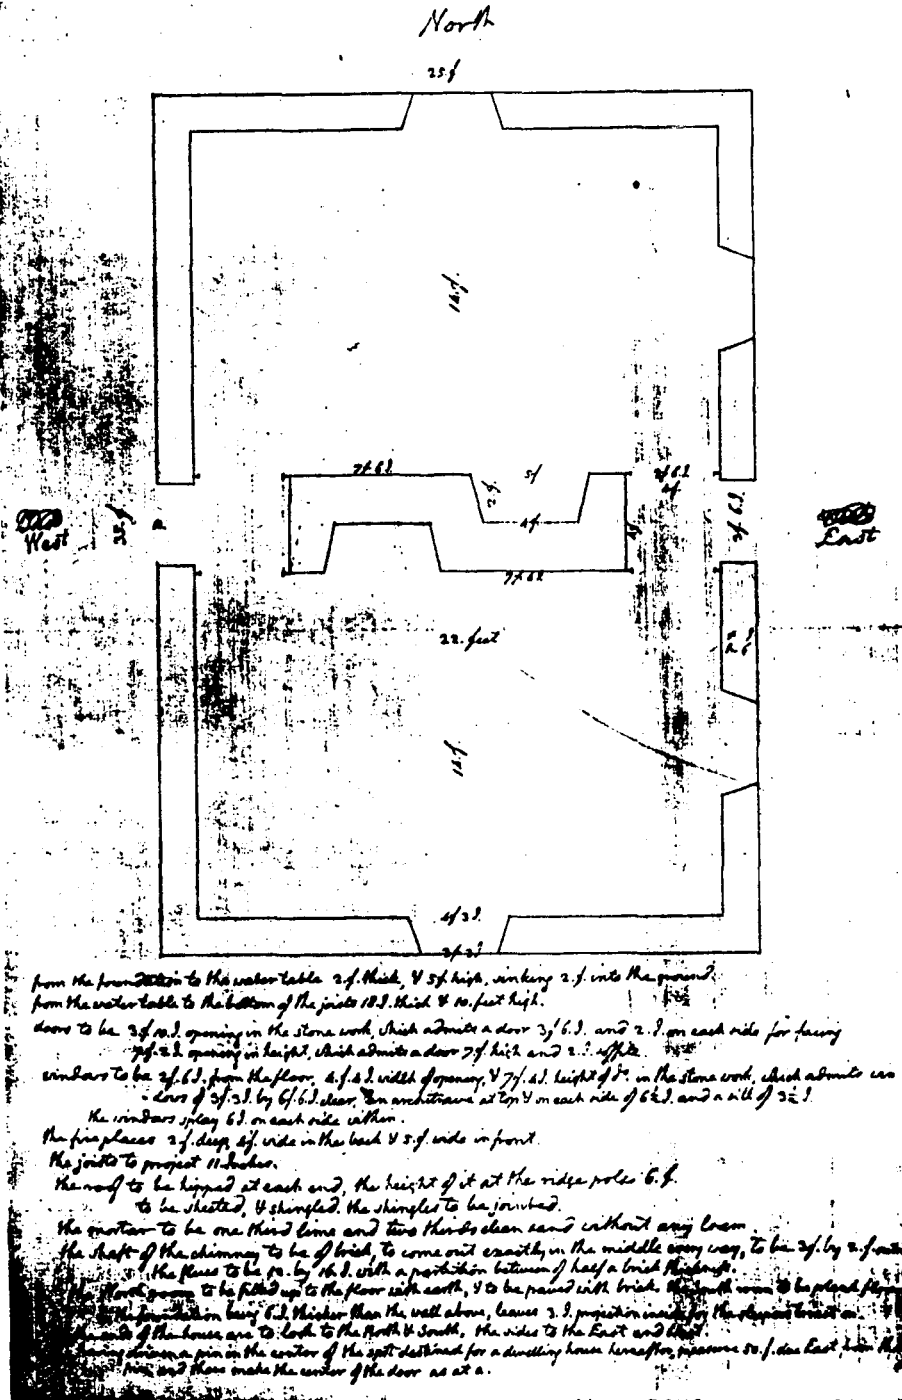 North
25.f
14.f.
7f 6I
5f
2f 6I
4f
2.f.
4f
4f
3f 6I.
West
a
East
7f 6I
22. feet
14.f.
4f 3I.
3f 3I
from the foundation to the water table 2.f. thick, & 5f. high, sinking 2.f. into the ground.
from the water table to the bottom of the joists 18I. thick & 10. feet high.
doors to be 3.f. 10.I. opening in the stone work, which admits a door 3f 6I. and 2.I. on each side for facing
7f. 2I. opening in height, which admits a door 7.f. high and 2.I.
windows to be 2f. 6I. from the floor, 4.f. 4.I. width of opening, & 7f. 4I. height of do. in the stone work, which admits win
dows of 3f. 3I. by 6f. 6I. clear, an architrave at top & on each side of 6½ I. and a sill of 3½ I.
the windows splay 6I. on each side within.
the fire places 2.f. deep, 4f. wide in the back & 5.f. wide in front.
the joists to project 11 Inches.
the roof to be hipped at each end, the height of it at the ridge poles 6.f.
to be sheeted, & shingled. the shingles to be jointed.
the mortar to be one third lime and two thirds clean sand without any loam.
the shaft of the chimney to be of brick, to come out exactly in the middle every way, to be 3f. by 2.f.
the flues to be 10. by 14 I. with a partition between of half a brick thickness.
the North room to be filled up to the floor with earth, & to be paved with brick. the South room to be
the foundation being 6I. thicker than the wall above, leaves 3.I. projection inside for the sleepers to rest on.
the ends of the house are to look to the North & South, the sides to the East and West.
having driven a pin in the center of the spot destined for a dwelling house hereafter, measure 50.f. due East from the
pin, and there make the center of the door as at a.